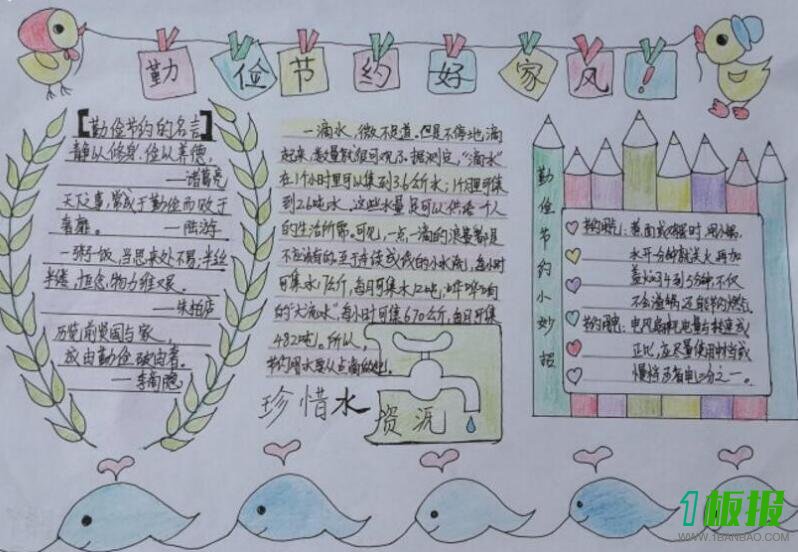 勤俭节约好家风!
【勤俭节约的名言】
静以修身,俭以养德,
——诸葛亮
天下之事,常成于勤俭而败于
奢靡。 ——陆游
一粥一饭,当思来处不易;半丝
半缕,恒念物力维艰。
——朱柏庐
历览前贤国与家,
成由勤俭破由奢。
——李商隐
一滴水,微不足道。但是不停地滴
起来,数量就很可观了。据测定,“滴水”
在1个小时里可以集到3.6公斤水;1个月里可集
到2.6吨水,这些水量足可以供给一个人
的生活所需。可见,一点一滴的浪费都是
不应该有的。至于连续成线的小水流,每小时
可集水17公斤,每月可集水12吨,哗哗响
的“大流水”,每小时可集670公斤,每月可集
482吨。所以,
节约用水要从点滴做起。
珍惜水
资源
勤俭节约小妙招
节约用气:煮面或鸡蛋时,用小锅,
水开一分钟就关火再加
盖焖3到5分钟,不仅
不会溢锅,还能节约燃气
节约用电:电风扇耗电量与转速成
正比,应尽量使用中档或
慢档,可省电三分之一。
1板报
WWW.1BANBAO.COM